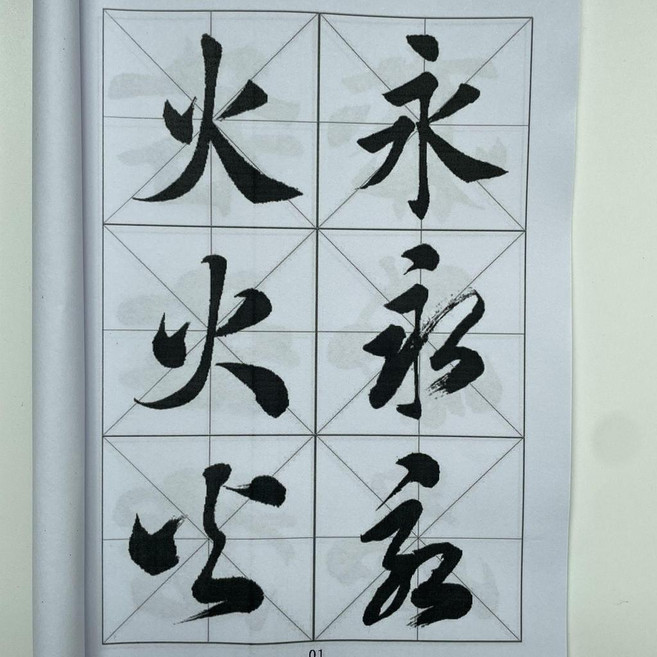 永
永
永
火
火
火
01